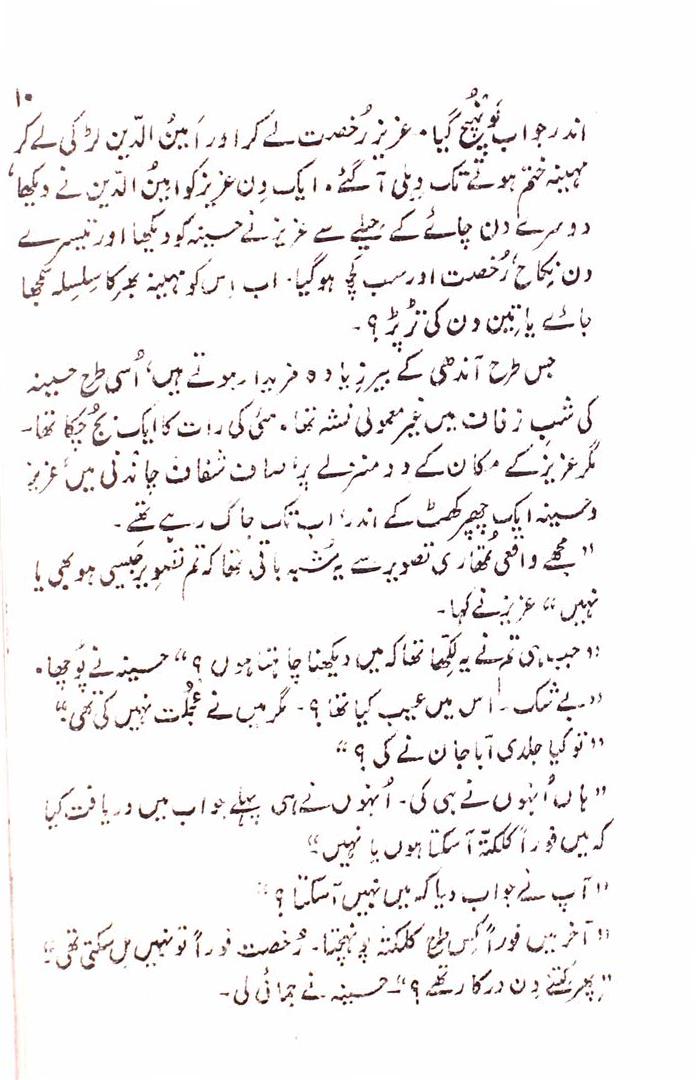 ۱۰
اندر جواب پہونچ گیا۔ عزیز رُخصت لے کر اور اَمینُ الدّین لڑکی لے کر
مہینہ ختم ہوتے تک دِہلی آ گئے۔ ایک دِن عزیز کو امینُ الدّین نے دیکھا،
دوسرے دن چائے کے حیلے سے عزیز نے حسینہ کو دیکھا اور تیسرے
دن نِکاح، رُخصت اور سب کچھ ہو گیا۔ اب اِس کو مہینہ بھر کا سِلسِلہ سمجھا
جائے یا تین دن کی تڑپڑ؟۔
جس طرح آندھی کے بیر زیادہ خریدار ہوتے ہیں، اُسی طرح حسینہ
کی شبِ زفاف میں غیر معمولی نشہ تھا۔ مئی کی رات کا ایک بج چُکا تھا۔
مگر عزیز کے مکان کے دو منزلے پر صاف شفاف چاندنی میں، عزیز
و حسینہ ایک چھپر کھٹ کے اندر اب تک جاگ رہے تھے۔
"مجھے واقعی تُمھاری تصویر سے یہ شُبہ باقی تھا کہ تم تصویر جیسی ہو بھی یا
نہیں" عزیز نے کہا۔
"جب ہی تم نے یہ لِکھا تھا کہ میں دیکھنا چاہتا ہوں؟" حسینہ نے پُوچھا۔
"بے شک۔ اس میں عیب کیا تھا؟۔ مگر میں نے عُجلت نہیں کی تھی۔"
"تو کیا جلدی ابّا جان نے کی؟"
"ہاں اُنہوں نے ہی کی۔ اُنہوں نے ہی پہلے جواب میں دریافت کیا
کہ میں فوراً کلکتّہ آ سکتا ہوں یا نہیں۔"
"آپ نے جواب دیا کہ میں نہیں آ سکتا؟"
"آخر میں فوراً کِس طرح کلکتّہ پہونچتا۔ رُخصت فوراً تو نہیں مِل سکتی تھی۔"
"پھر کِتنے دِن درکار تھے؟"۔ حسینہ نے جمائی لی۔